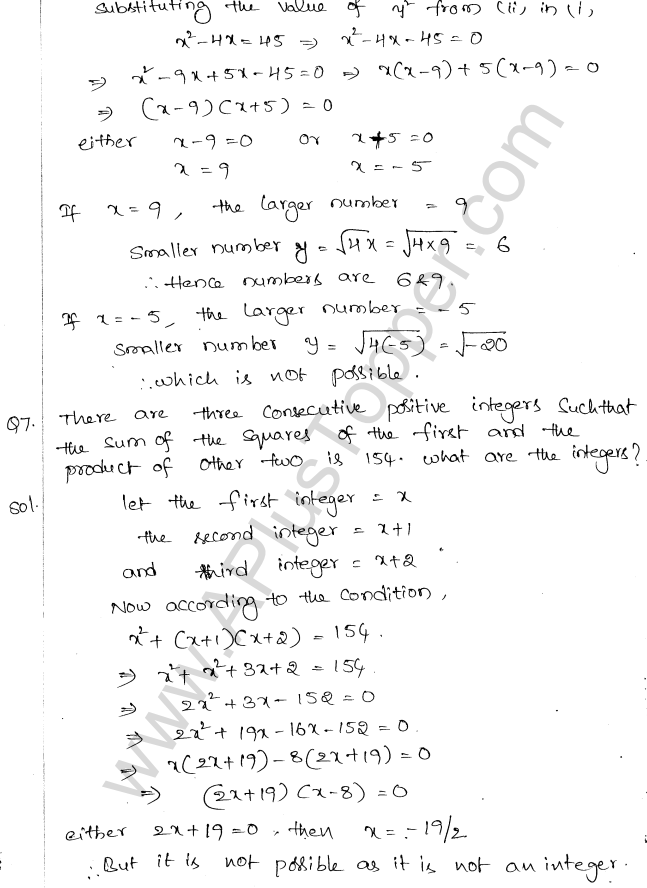 substituting the value of y² from (ii, in (i,
x²-4x=45 ⇒ x²-4x-45=0
⇒ x²-9x+5x-45=0 ⇒ x(x-9)+5(x-9)=0
⇒ (x-9)(x+5)=0
either x-9=0 or x+5=0
x=9 x=-5
If x=9, the larger number = 9
Smaller number y = √4x = √4×9 = 6
∴ Hence numbers are 6&9.
If x=-5, the larger number = -5
Smaller number y = √4(-5) = √-20
∴ which is not possible.
Q7. There are three consecutive positive integers such that
the sum of the squares of the first and the
product of other two is 154. what are the integers?
sol. let the first integer = x
the second integer = x+1
and third integer = x+2
Now according to the condition,
x²+(x+1)(x+2)=154.
⇒ x²+x²+3x+2=154
⇒ 2x²+3x-152=0
⇒ 2x²+19x-16x-152=0
⇒ x(2x+19)-8(2x+19)=0
⇒ (2x+19)(x-8)=0
either 2x+19=0, then x=-19/2
∴ But it is not possible as it is not an integer.
www.APlusTopper.com